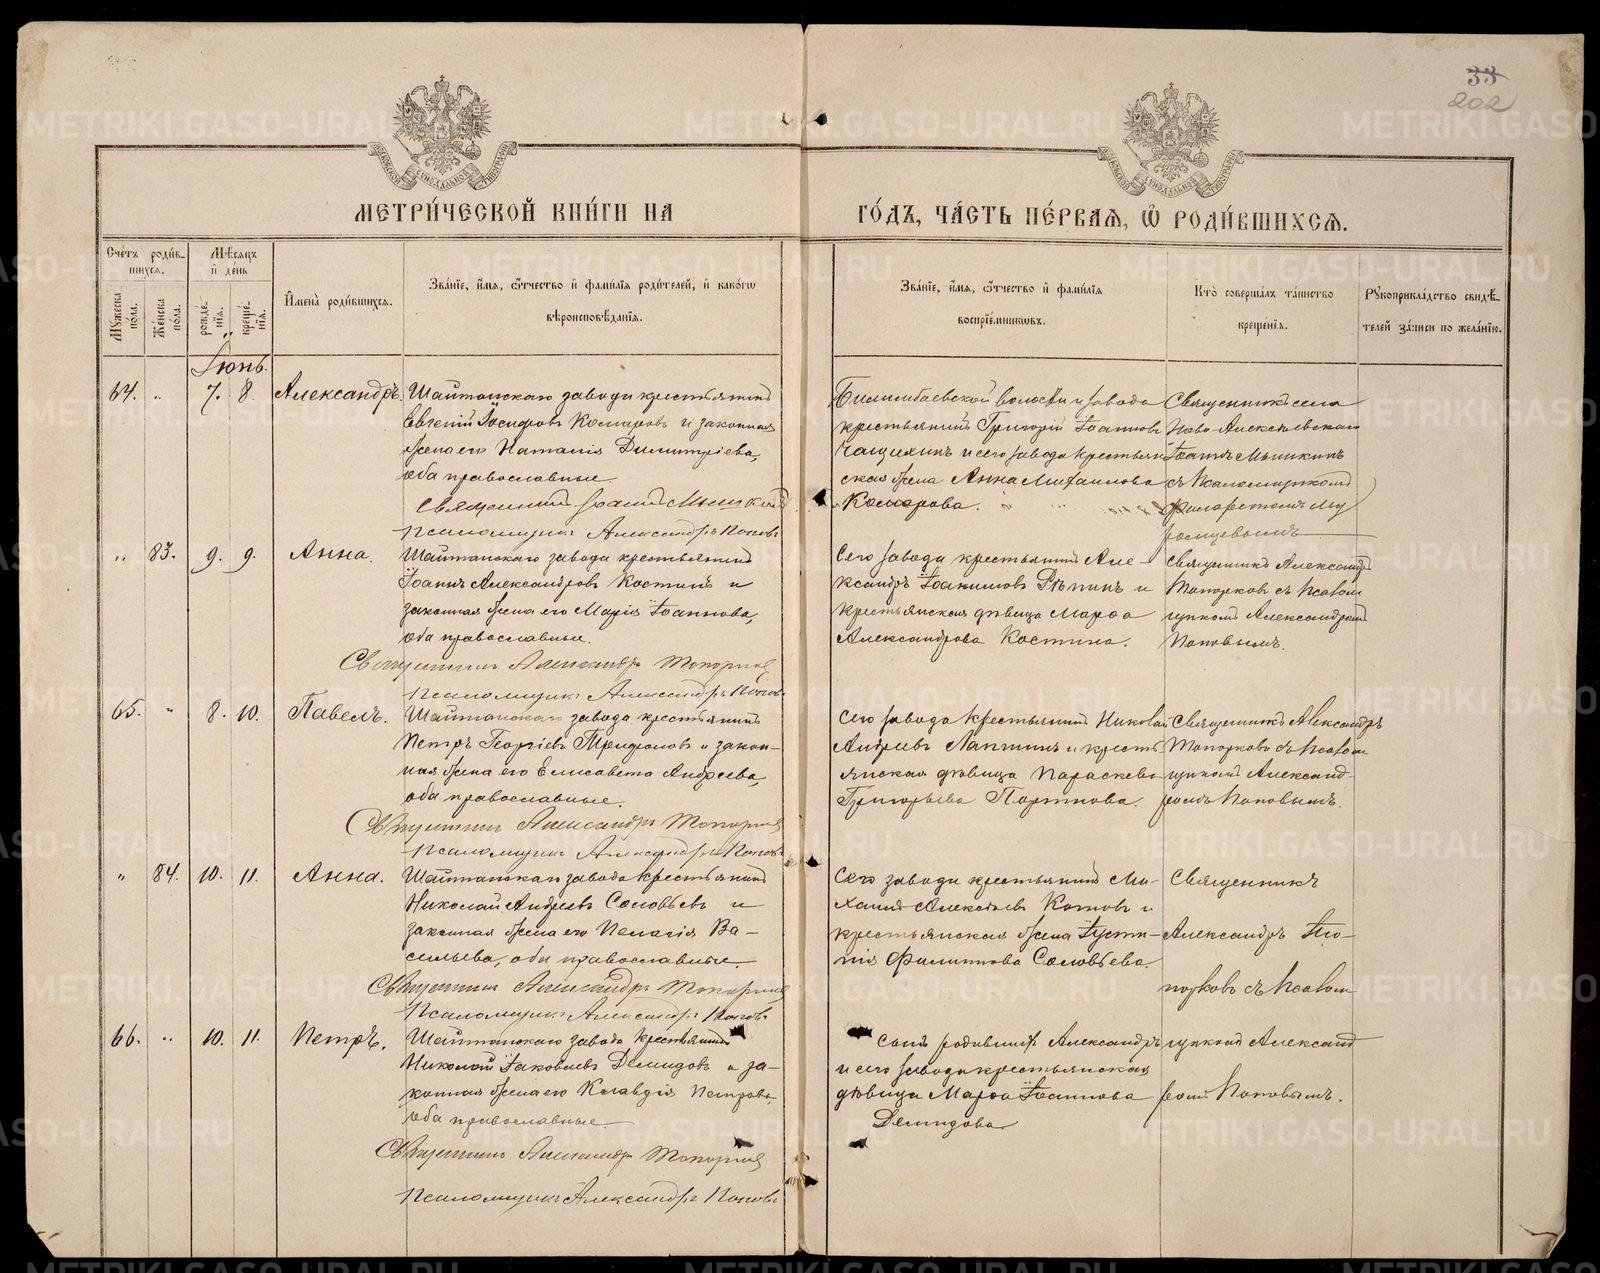 33
202
МЕТРИ́ЧЕСКОЙ КНИ́ГИ НА ГО́ДЪ, ЧА́СТЬ ПЕ́РВАѦ, Ѿ РОДИ́ВШИХСѦ.
Сче́тъ роди́в-
шихсѧ.
Мѣ́сѧцъ
и де́нь
Мꙋ́жеска по́ла.
Же́нска по́ла.
рожде́-
нїѧ.
креще́-
нїѧ.
Имена̀ роди́вшихсѧ.
Зва́нїе, и́мѧ, ѻ́тчество и фами́лїѧ роди́телей, и како́гѡ
вѣроисповѣ́данїѧ.
Зва́нїе, и́мѧ, ѻ́тчество и фами́лїѧ
воспрїе́мникѡвъ.
Кто̀ соверша́лъ та́инство
креще́нїѧ.
Рꙋкоприкла́дство свидѣ́-
телей за́писи по жела́нїю.
Іюнь.
64. „ 7. 8. Александръ.
Шайтанскаго завода крестьянинъ
Евгеній Іосифовъ Комаровъ и законная
жена его Наталія Димитріева,
оба православные.
Священникъ Іоаннъ Мышкинъ
Псаломщикъ Александръ Поповъ
Билимбаевской волости и завода
крестьянинъ Григорій Іоанновъ
Чащихинъ и сего завода крестьян
ская жена Анна Михаилова
Комарова.
Священникъ села
Ново-Алексѣевскаго
Іоаннъ Мышкинъ
съ Псаломщикомъ
„ 83. 9. 9. Анна.
Шайтанскаго завода крестьянинъ
Іоаннъ Александровъ Костинъ и
законная жена его Марія Іоаннова,
оба православные.
Священникъ Александръ Топорковъ
Псаломщикъ Александръ Поповъ
Сего завода крестьянинъ Але-
ксандръ Іоакимовъ Рѣпинъ и
крестьянская дѣвица Марѳа
Александрова Костина.
Священникъ Александръ
Топорковъ съ Псалом
щикомъ Александромъ
Поповымъ.
65. „ 8. 10. Павелъ.
Шайтанскаго завода крестьянинъ
Петръ Георгіевъ Трифоновъ и закон-
ная жена его Елисавета Андреева,
оба православные.
Священникъ Александръ Топорковъ
Псаломщикъ Александръ Поповъ
Сего завода крестьянинъ Николай
Андреевъ Лаптинъ и кресть
янская дѣвица Параскева
Григорьева Портнова.
Священникъ Александръ
Топорковъ съ Псалом
щикомъ Александ-
ромъ Поповымъ.
„ 84. 10. 11. Анна.
Шайтанскаго завода крестьянинъ
Николай Андреевъ Соловьевъ и
законная жена его Пелагія Ва-
сильева, оба православные.
Священникъ Александръ Топорковъ
Псаломщикъ Александръ Поповъ
Сего завода крестьянинъ Ми-
хаилъ Алексѣевъ Котовъ и
крестьянская жена Іусти-
нія Филиппова Соловьева.
Священникъ
Александръ То-
порковъ съ Псалом
66. „ 10. 11. Петръ.
Шайтанскаго завода крестьянинъ
Николай Іаковлевъ Демидовъ и за-
конная жена его Клавдія Петрова,
оба православные.
Священникъ Александръ Топорковъ
Псаломщикъ Александръ Поповъ
Сынъ родившій Александръ
и сего завода крестьянская
дѣвица Марѳа Іоаннова
Демидова
щикомъ Александ
ромъ Поповымъ.
METRIKI.GASO-URAL.RU